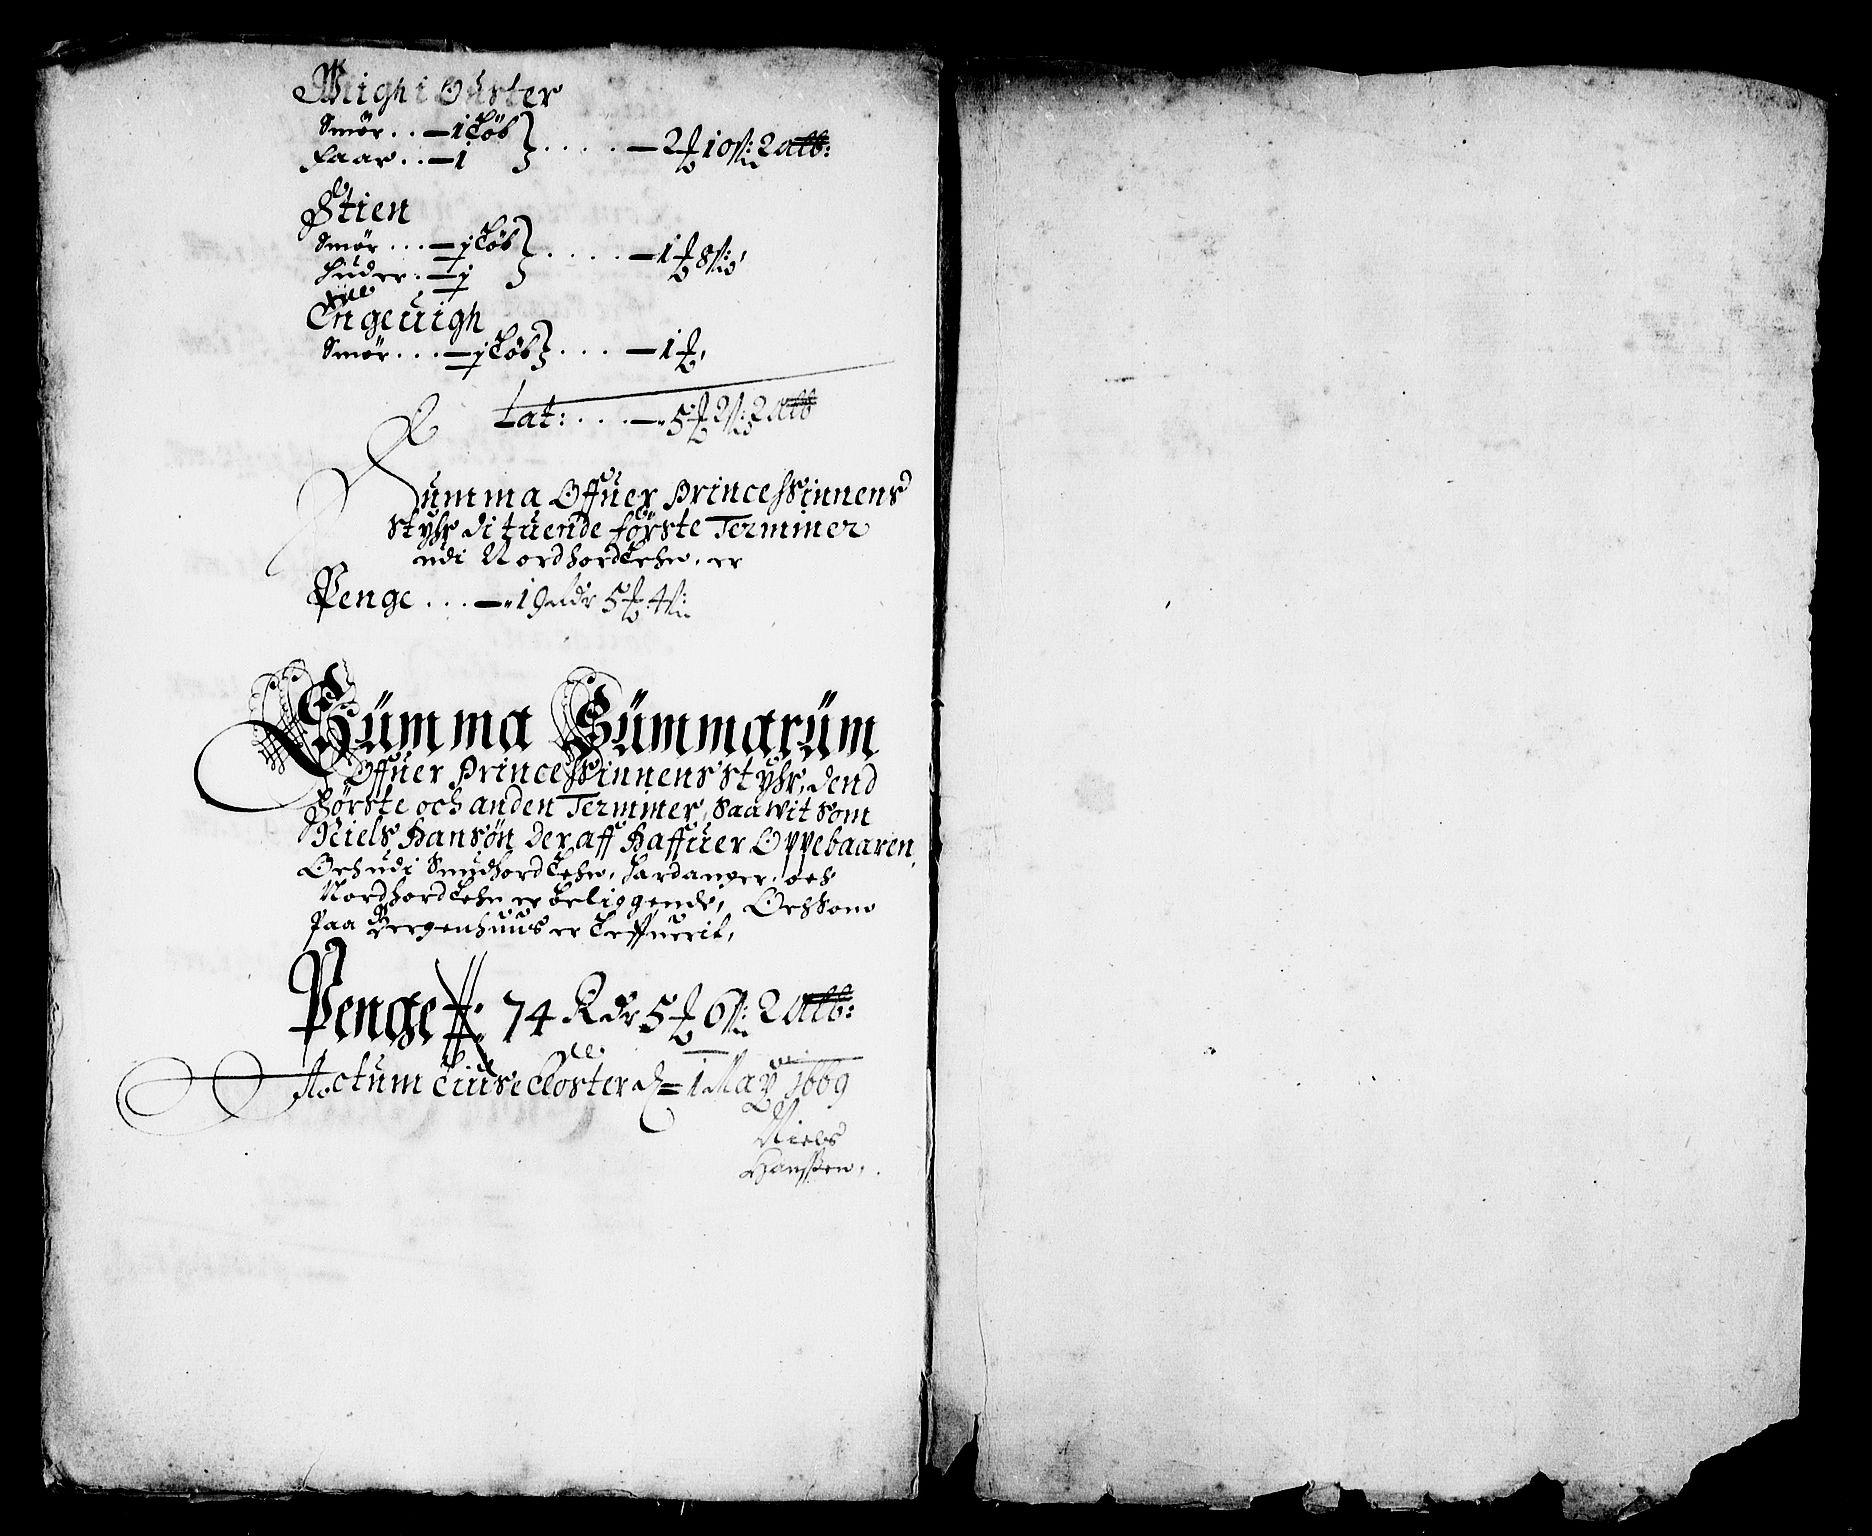 Wiigh i Ouster
Smør . . — 1 Løb
Faar . . — 1 } . . . . — 2 ₰ 10 ß: 2 alb:
Stien
Smør . . . — j Løb
Huder . — j } . . . . . — 1 ₰ 8 ß:
Engeuigh
Smør . . . — j Løb } . . . . — 1 ₰,
Lat: . . . . — 5 ₰ 2 ß: 2 alb
Summa Offuer Princessinnens
Styhr di tuende förste Terminer
udi Nordhordlehn, er
Penge . . . — 19 Rdr 5 ₰ 4 ß:
Sümma Sümmarüm
Offuer Princessinnens Styhr, dend
Förste och anden Terminer, Saa wit som
Niels Hansøn der aff Haffuer Oppebaaren,
Och udi Sundhordlehn, Hardanger, och
Nordhordlehn er beliggende, Och som
Paa Bergenhuus er Leffuerit,
Penge 74 Rdr 5 ₰ 6 ß: 2 alb:
Actum Liuse Closter d= 1 May 1669
Niels
Hanssen,